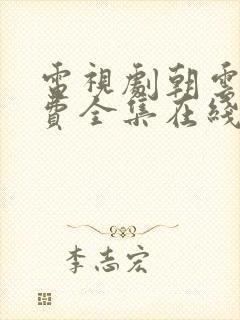 電視劇朝雲
費全集在綫
李志宏